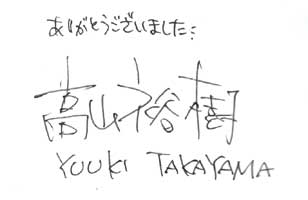 ありがとうございました:
高山裕樹
YUUKI TAKAYAMA